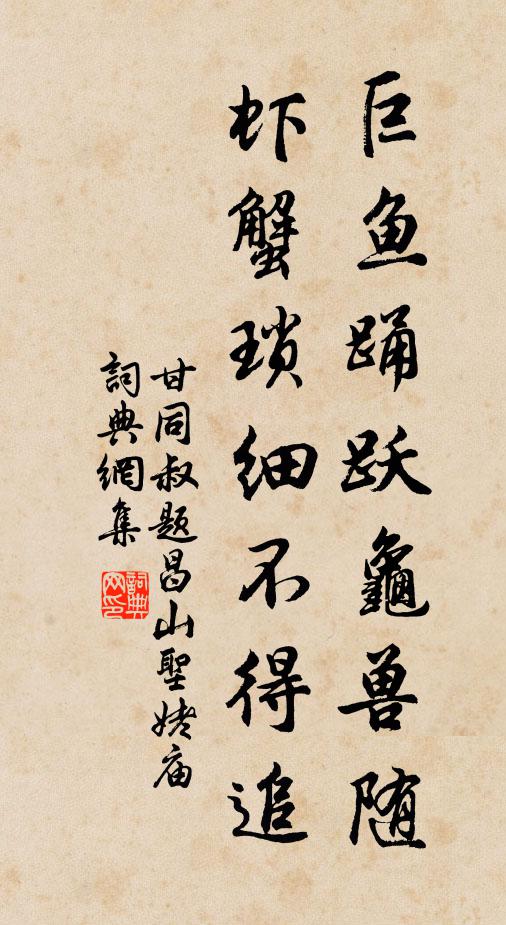 巨鱼踊跃龜兽随
虾蟹琐细不得追
甘同叔题曷山聖姥庙
詞典網集
詞典网印